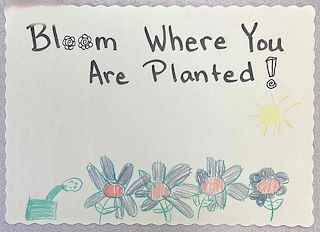 Bloom Where You
Are Planted!